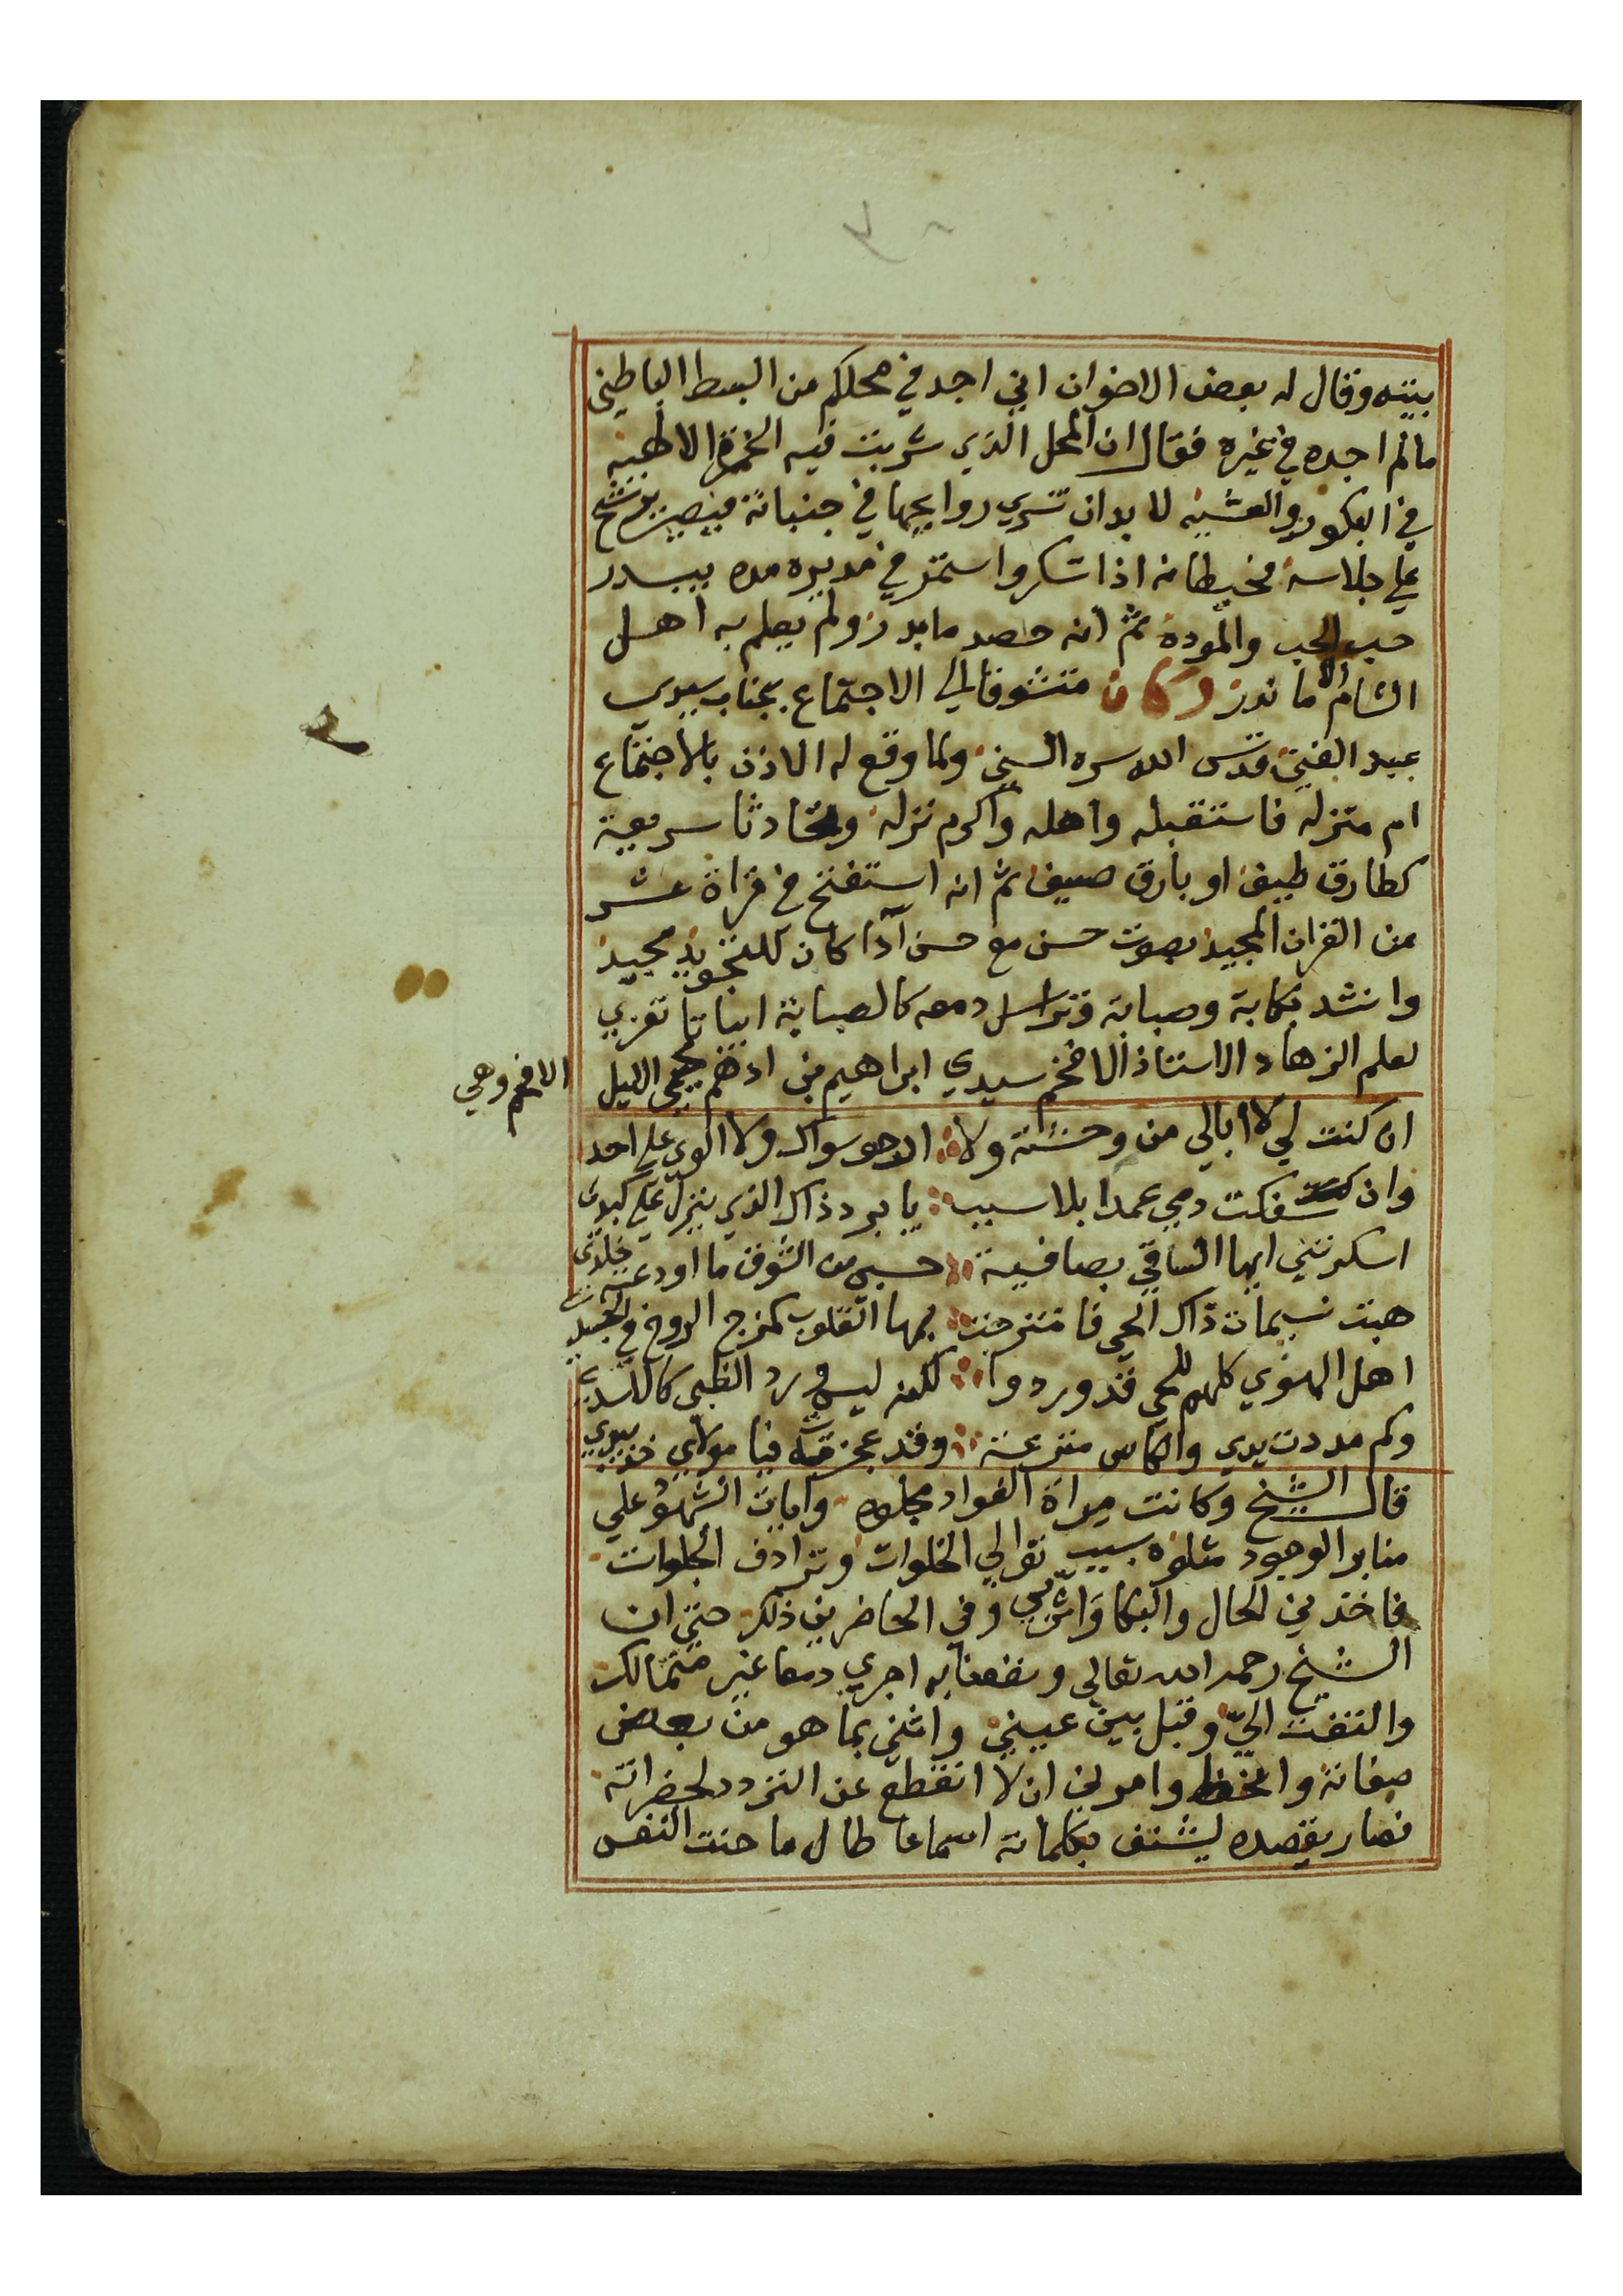 بيته وقال له بعض الاخوان اني اجد في محلكم من البسط الباطني
مالم اجده في غيره فقال ان المحل الذي شربت فيه الخمرة الاطهيه
في البكور والعشيه لا بد ان تسري روايحها في جنباته فيصير يرشح
علي جلاسه مخيطانه اذا تسكر واستمر في مديره مده يبدر
حب الحب والموده ثم انه حصد ما بدر ولم يعلم به اهل
الشام الا ما ندر وكان متشوقا الي الاجتماع بجناب سيدي
عبد الغني قدس الله سره السني ولما وقع له الاذن بالاجتماع
ام منزله فاستقبله واهله واكرم نزله وتحادثا سريعة
كطارق طيف او بارق صيف ثم انه استفتح في قراة عشر
من القران المجيد بصوت حسن مع حسن آدا كان للتجويد مجيد
وانشد بكابة وصبابة وتراسل دمعه كالصبابة ابياتا تعزي
لعلم الزهاد الاستاذ الافخم سيدي ابراهيم بن ادهم محيي الليل
الافحم وهي
ان كنت لي لا ابالي من وحشته ولا ارجو سواك ولا الوي علي احد
وان سفكت دمي عمدا بلا سبب يا برد ذاك الذي ينزل علي كبدي
اسكرتني ايها الساقي بصافية حسبي من الشوق ما اودعته خلدي
هبت نسيمات ذاك الحي فامتزجت بها القلوب كمزج الروح في الجسد
اهل الهوي كلهم للحي قد وردوا لكن ليس ورد الظبي كالاسد
وكم مددت يدي والكاس مترعة وقد عجزت فيا مولاي خذ بيدي
قال الشيخ وكانت مراة الفواد مجلوه وايات الشهود علي
منابر الوجود متلوه بسبب توالي الخلوات وترادف الجلوات
فاخذني الحال والبكا واثر في وفي الحاضرين ذلك حتي ان
الشيخ رحمه الله تعالي ونفعنا به اجري دمعا غير متمالك
والتفت اليّ وقبل بين عيني واثني بما هو من بعض
صفاته وامرني ان لا انقطع عن التردد لحضراته
فصار يقصده ليشنف بكلماته اسماعا طال ما حنت النفس